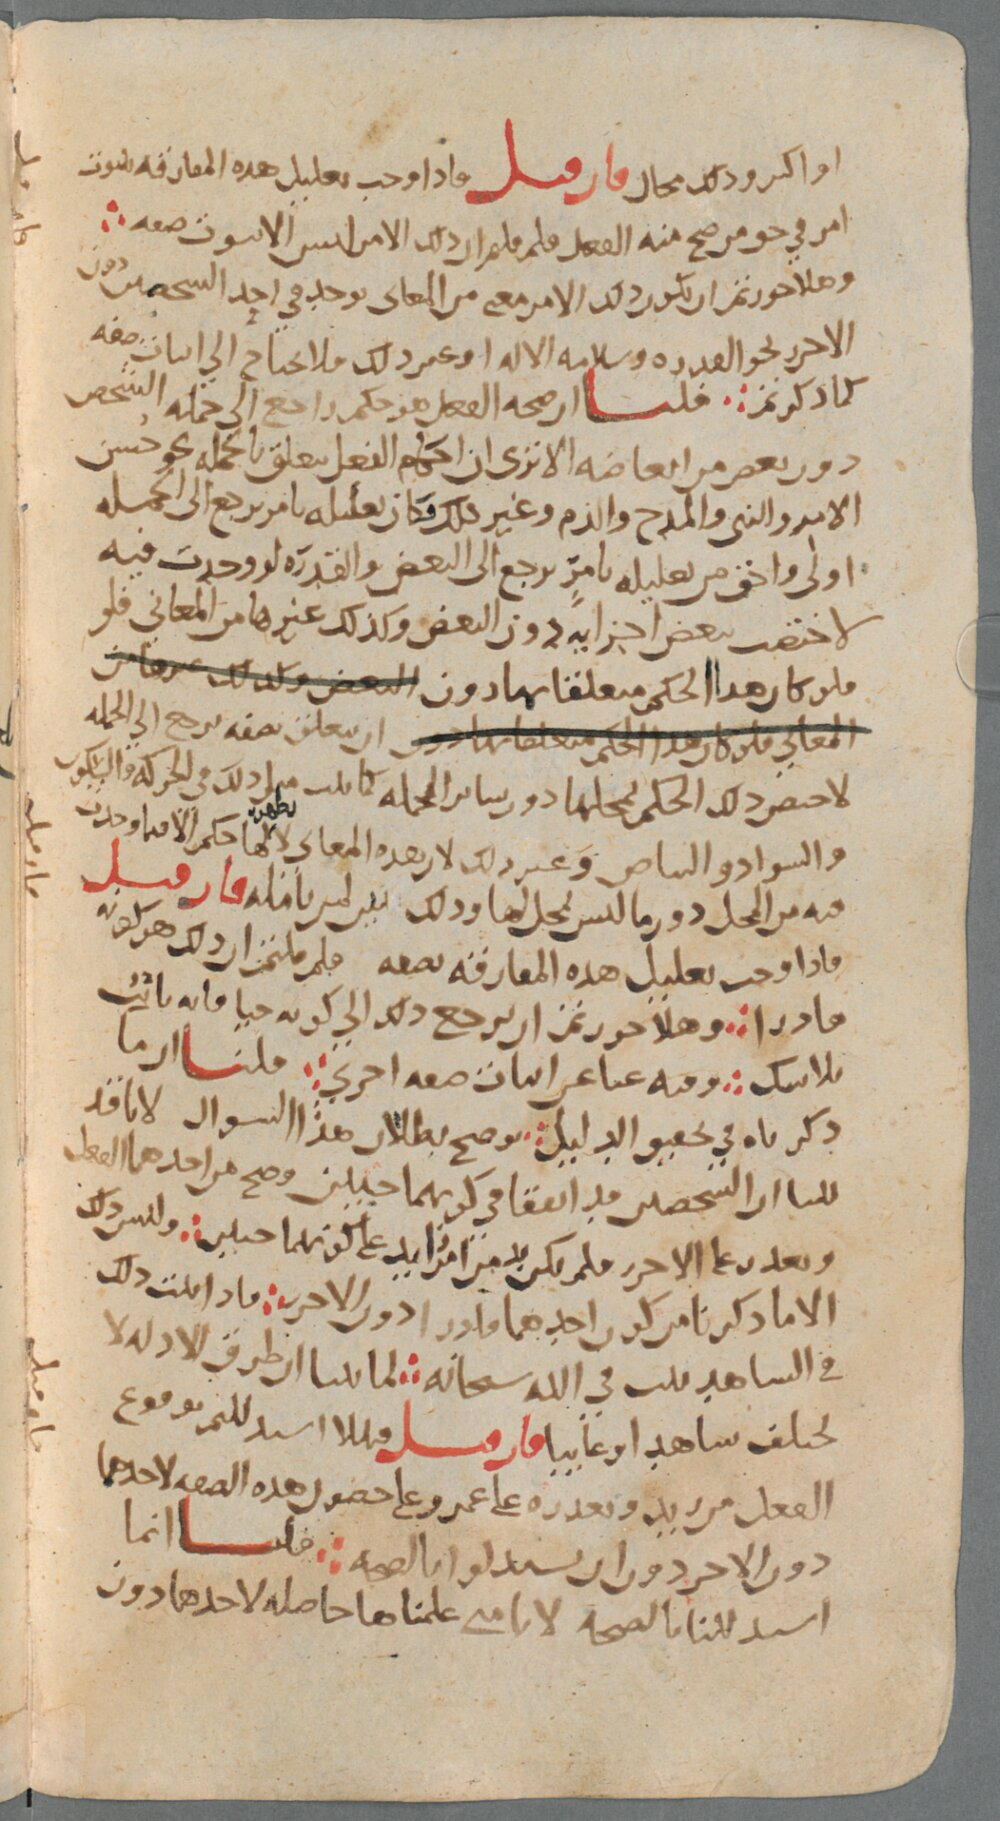 او اكثر وذلك محال فان قيل فاذا وجب تعليل هذه المفارقه بثبوت
امر في حق من صح منه الفعل فلم قلتم ان ذلك الامر ليس الا ثبوت صفه ∴
وهلا جوزتم ان يكون ذلك الامر معنى من المعاني يوجد في احد الشخصين دون
الاخر نحو القدره وسلامه الاله او غير ذلك فلا يحتاج الى اثبات صفه
كما ذكرتم ∴ قلنا ان صحه الفعل هو حكم راجع الى جمله الشخص
دون بعض من ابعاضه الا ترى ان احكام الفعل يتعلق بالجمله نحو حسن
الامر والنهي والمدح والذم وغير ذلك فكان تعليله بامر يرجع الى الجمله
اولى واحق من تعليله بامر يرجع الى البعض والقدره لو وجدت فيه
لاختصت ببعض اجزايه دون البعض وكذلك غيرها من المعاني فلو
فلو كان هذا الحكم متعلقا بها دون البعض وكذلك غيرها من
المعاني فلو كان هذا الحكم متعلقا بها دون ان يتعلق بصفه يرجع الى الجمله
لاختص ذلك الحكم بمحلها دون ساير الجمله كما يثبت مثل ذلك في الحركه والسكون
والسواد والبياض وغير ذلك لان هذه المعاني لا يظهر لها حكم الا فيما وجدت
فيه من المحل دون ما ليس بمحل لها وذلك بين لمن تامله فان قيل
فاذا وجب تعليل هذه المفارقه بصفه فلم قلتم ان ذلك هو كونه
قادرا ∴ وهلا جوزتم ان يرجع ذلك الى كونه حيا فانه ثابت
بلا شك ∴ وفيه غنا عن اثبات صفه اخرى ∴ قلنا ان ما
ذكرناه في تحقيق الدليل ∴ يوضح بطلان هذا السوال لانا قد
بينا ان الشخصين قد اتفقا في كونهما حيين وصح من احدهما الفعل
وتعذر على الاخر فلم يكن بد من امر زايد على كونهما حيين ∴ وليس ذلك
الا ما ذكرنا من كون احدهما قادرا دون الاخر ∴ فاذا ثبت ذلك
في الشاهد ثبت في الله سبحانه ∴ لما بينا ان طرق الادله لا
تختلف شاهدا وغايبا فان قيل فهلا استدللتم بوقوع
الفعل من زيد وتعذره على عمرو على حصول هذه الصفه لاحدهما
دون الاخر دون ان تستدلوا بالصحه ∴ قلنا انما
استدللنا بالصحه لانا متى علمناها حاصله لاحدهما دون